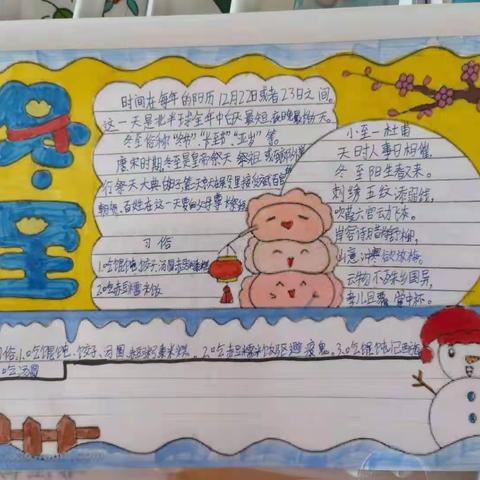 冬至
时间在每年的阳历12月22日或者23日之间。
这一天是北半球全年中白天最短、夜晚最长的一天。
冬至俗称"冬节""长至节""亚岁"等。
唐宋时期,冬至是皇帝祭天 祭祖
行祭天大典
百姓在这一天要向父母尊长祭拜
习俗
1.吃馄饨 饺子 汤圆 赤豆糯米
2.吃赤豆糯米饭
小至—杜甫
天时人事日相催,
冬至阳生春又来。
刺绣五纹添弱线,
吹葭六管动飞灰。
岸容待腊将舒柳,
山意冲寒欲放梅。
云物不殊乡国异,
教儿且覆掌中杯。
习俗1.吃馄饨、饺子、汤圆、赤豆 米糕。2.吃赤豆糯米饭驱避疫鬼。3.吃馄饨
吃汤圆